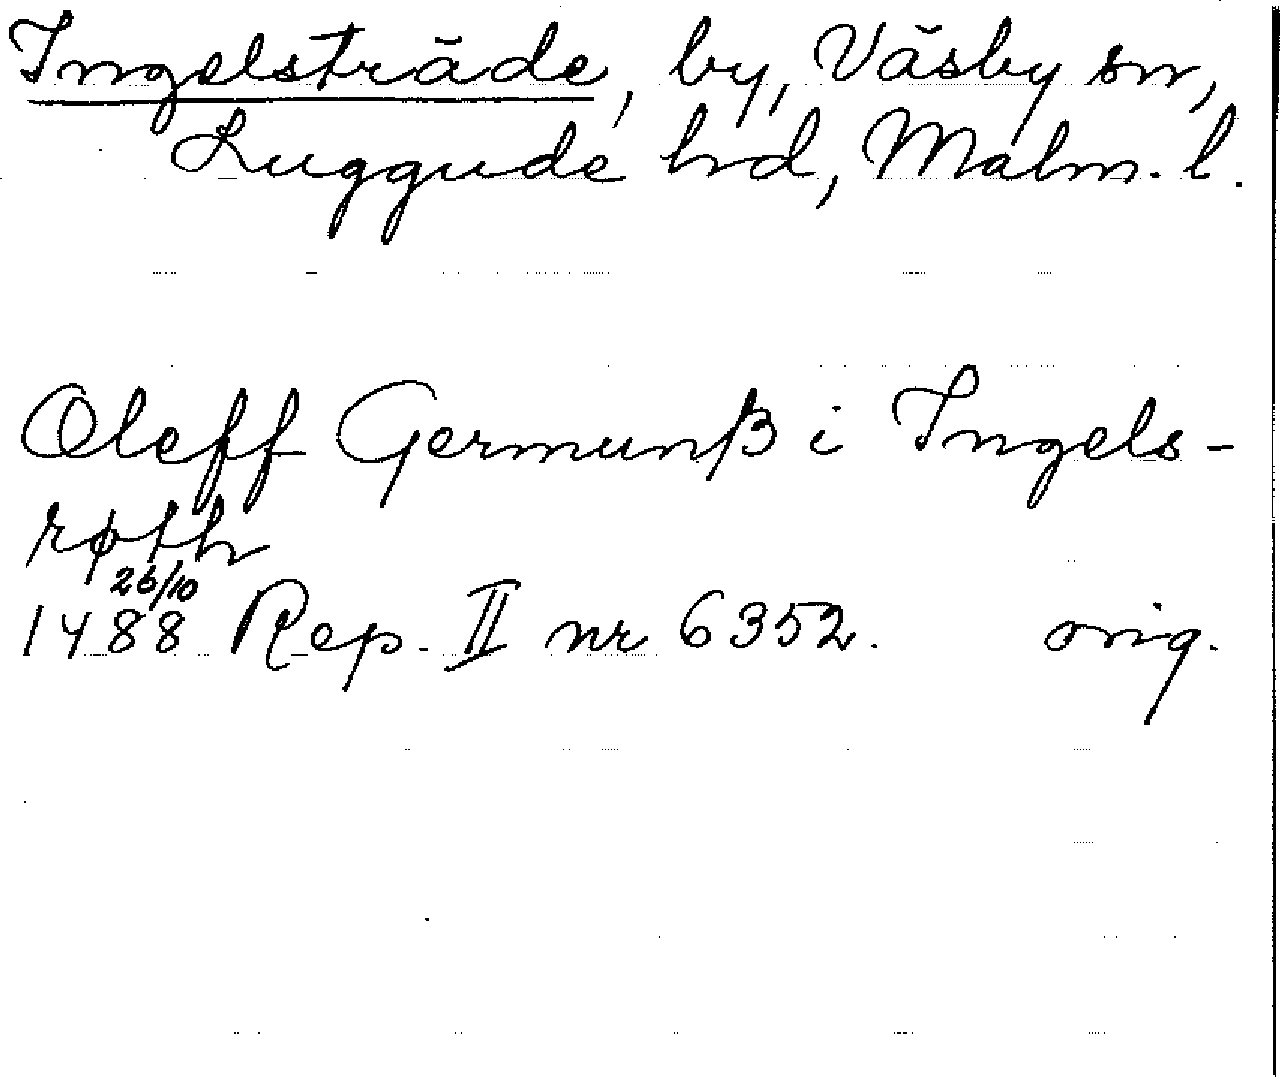 Ingelsträde, by, Väsby sn,
Luggude hd, Malm. l.
Oleff Germunß i Ingels-
røth
26/10
1488 Rep. II nr 6352. orig.